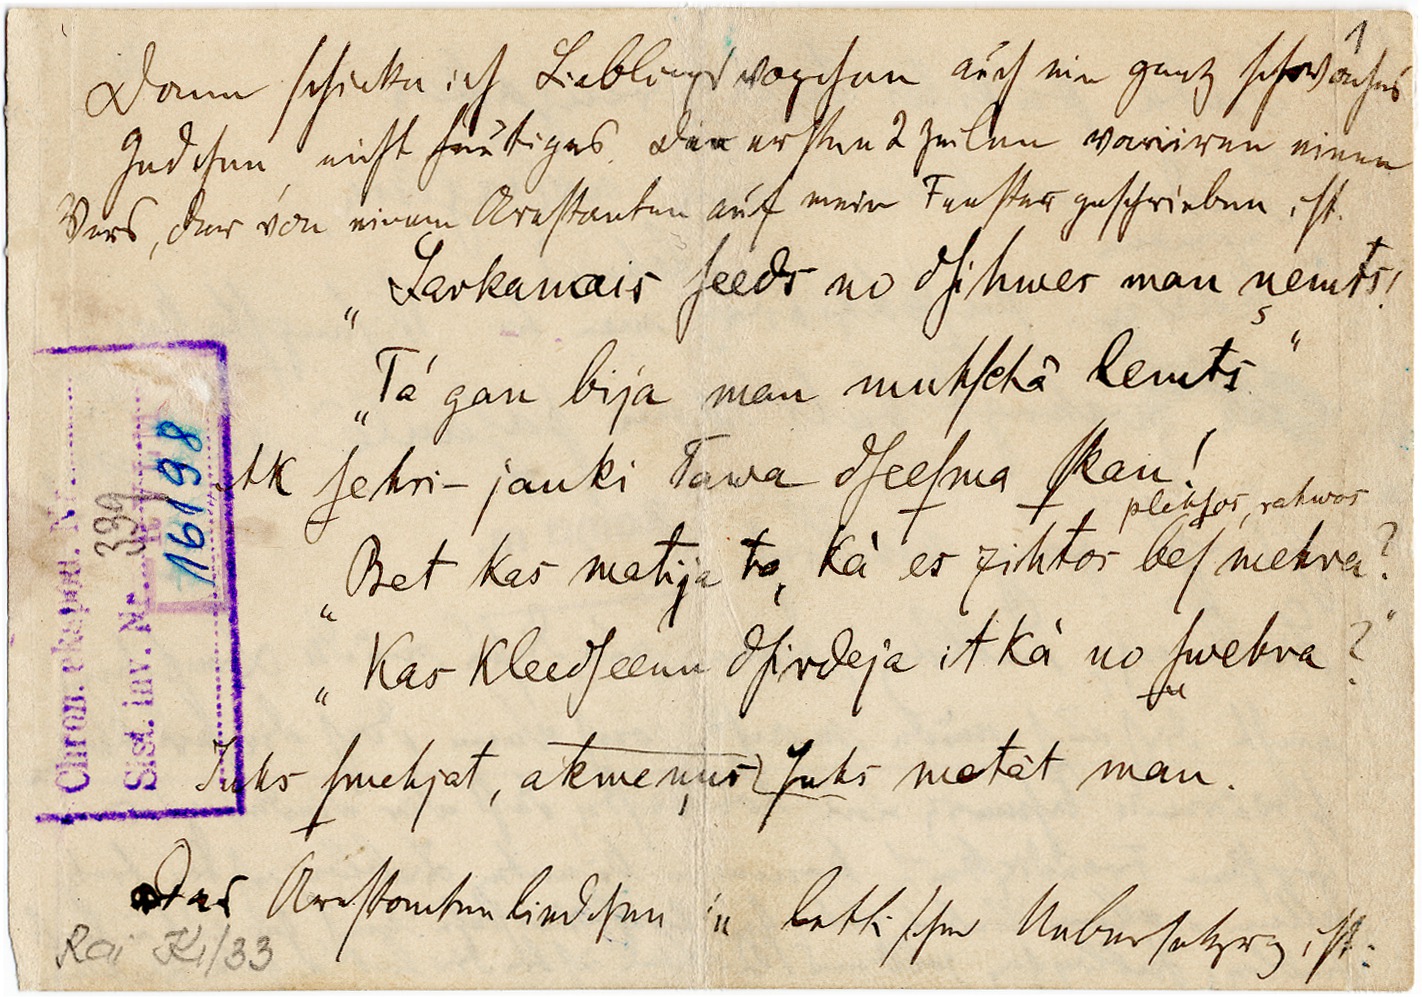 1
Dann schicke ich Lieblingsvögchen auch ein ganz schwaches
Gedchen, nicht heutiges. Die ersten 2 Zeilen variiren einen
Vers, der von einem Arestanten auf mein Fenster geschrieben ist.
„Sarkanais seeds no dsihwes man ņemts!
„Tá gan bija man muhschâ lemts“
Ak sehri-jauki Tawa dseesma skan!
plehsos, rahwos
„Bet kas matija to, kà es zihtos bes mehra?
„Kas kleedseenu dsirdeja itkà no swehra?“
Juhs smehjat, akmeņus Juhs metāt man.
Das Arestantenliedchen in lettischer Uebersetzung ist:
Chron. ekspon. Nr.
Sist. inv. Nr.
339
16198
Rai K1/33